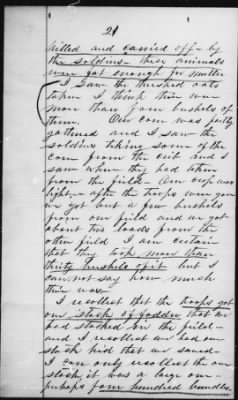 21
killed and carried off by
the soldiers - these animals
were fat enough for mutton
I saw the threshed oats
taken I think there were
more than four bushels of
them. Our corn was partly
gathered and I saw the
soldiers taking some of the
corn from the crib and I
saw where they had taken
from the field - Our crop was
light - after the troops were gone
we got but a few bushels
from one field and we got
about two loads from the
other field I am certain
that they took more than
thirty bushels of it but I
can not say how much
there was.
I recollect that the troops got
one stack of fodder that we
had stacked in the field -
and I recollect we had one
stack hid that we saved
I can only recollect the one
stack it was a large one -
perhaps four hundred bundles.